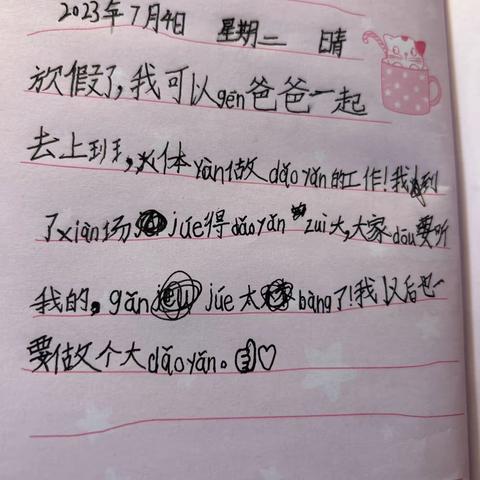 2023年7月4日 星期二 晴
放假了,我可以gēn爸爸一起
去上班,体yàn做dǎoyǎn的工作!我到
了xiàn场júe得dǎoyǎn zuì大,大家dōu要听
我的。gǎn júe太bàng了!我以后也
要做个大dǎoyǎn。